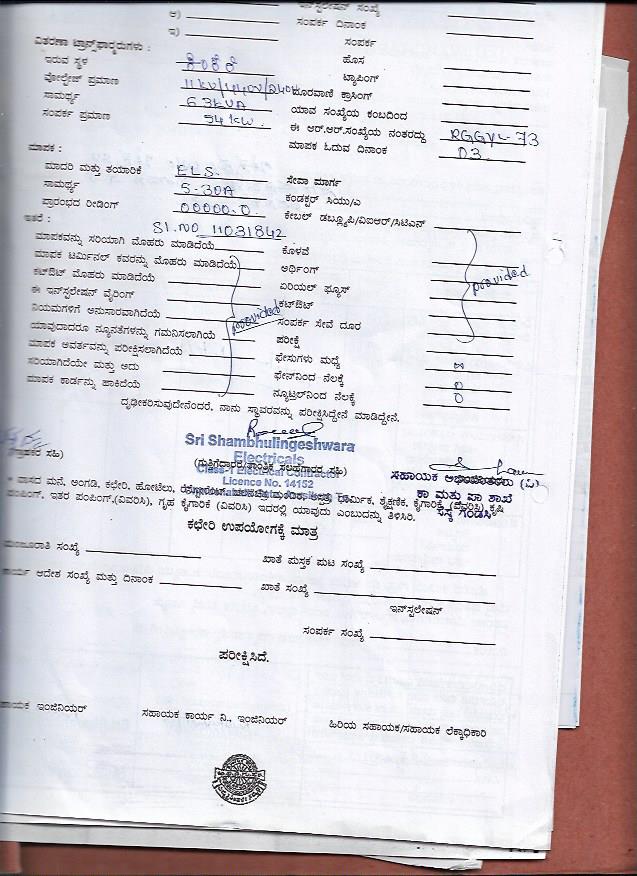 ಇನ್ಸ್ಪಲೇಷನ್ ಸಂಖ್ಯೆ
ಅ)
ಸಂಪರ್ಕ ದಿನಾಂಕ
ಇ)
ಸಂಪರ್ಕ
ವಿತರಣಾ ಟ್ರಾನ್ಸ್‌ಫಾರ್ಮರುಗಳು :
ಇರುವ ಸ್ಥಳ
ಹೊಸ
ವೋಲ್ಟೇಜ್ ಪ್ರಮಾಣ 11KV/440V/240V
ಟ್ಯಾಪಿಂಗ್
ಸಾಮರ್ಥ್ಯ 63KVA
ದೂರವಾಣಿ ಕ್ರಾಸಿಂಗ್
ಸಂಪರ್ಕ ಪ್ರಮಾಣ 54 KW.
ಯಾವ ಸಂಖ್ಯೆಯ ಕಂಬದಿಂದ
ಈ ಆರ್.ಆರ್.ಸಂಖ್ಯೆಯ ನಂತರದ್ದು RGGVL-73
ಮಾಪಕ ಓದುವ ದಿನಾಂಕ 03
ಮಾಪಕ :
ಮಾದರಿ ಮತ್ತು ತಯಾರಿಕೆ ELS.
ಸೇವಾ ಮಾರ್ಗ
ಸಾಮರ್ಥ್ಯ 5-30A
ಕಂಡಕ್ಟರ್ ಸಿಯು/ಎ
ಪ್ರಾರಂಭದ ರೀಡಿಂಗ್ 00000.0
ಕೇಬಲ್ ಡಬ್ಲ್ಯೂಪಿ/ವಿಐಆರ್/ಸಿಟಿಎನ್
ಇತರೆ :
Sl.NO 11031842
ಮಾಪಕವನ್ನು ಸರಿಯಾಗಿ ಮೊಹರು ಮಾಡಿದೆಯೆ
ಕೊಳವೆ
ಮಾಪಕ ಟರ್ಮಿನಲ್ ಕವರನ್ನು ಮೊಹರು ಮಾಡಿದೆಯೆ
ಅರ್ಥಿಂಗ್ provided
ಕಟ್‌ಔಟ್ ಮೊಹರು ಮಾಡಿದೆಯೆ
ಏರಿಯಲ್ ಫ್ಯೂಸ್
ಈ ಇನ್‌ಸ್ಟಲೇಷನ್ ವೈರಿಂಗ್
ಕಟ್‌ಔಟ್
ನಿಯಮಗಳಿಗೆ ಅನುಸಾರವಾಗಿದೆಯೆ provided
ಸಂಪರ್ಕ ಸೇವೆ ದೂರ
ಯಾವುದಾದರೂ ನ್ಯೂನತೆಗಳನ್ನು ಗಮನಿಸಲಾಗಿಯೆ
ಪರೀಕ್ಷೆ
ಮಾಪಕ ಆವರ್ತವನ್ನು ಪರೀಕ್ಷಿಸಲಾಗಿದೆಯೆ
ಫೇಸುಗಳು ಮಧ್ಯೆ ∞
ಸರಿಯಾಗಿದೆಯೇ ಮತ್ತು ಅದು
ಫೇಸ್‌ನಿಂದ ನೆಲಕ್ಕೆ 0
ಮಾಪಕ ಕಾರ್ಡನ್ನು ಹಾಕಿದೆಯೆ
ನ್ಯೂಟ್ರಲ್‌ನಿಂದ ನೆಲಕ್ಕೆ 0
ದೃಢೀಕರಿಸುವುದೇನೆಂದರೆ, ನಾನು ಸ್ಥಾವರವನ್ನು ಪರೀಕ್ಷಿಸಿದ್ದೇನೆ ಮಾಡಿದ್ದೇನೆ.
Sri Shambhulingeshwara
Electricals
(ಗುತ್ತಿಗೆದಾರರ/ತಾಂತ್ರಿಕ ಸಲಹೆಗಾರರ ಸಹಿ)
Class I Electrical Contractor
Licence No. 14152
ಸಹಾಯಕ ಅಭಿಯಂತರರು (ವಿ)
ಕಾ ಮತ್ತು ಪಾ ಶಾಖೆ
* ವಾಸದ ಮನೆ, ಅಂಗಡಿ, ಕಛೇರಿ, ಹೋಟೆಲು, ಧಾರ್ಮಿಕ, ಶೈಕ್ಷಣಿಕ, ಕೈಗಾರಿಕೆ (ವಿವರಿಸಿ) ಕೃಷಿ
ಪಂಪಿಂಗ್, ಇತರ ಪಂಪಿಂಗ್,(ವಿವರಿಸಿ), ಗೃಹ ಕೈಗಾರಿಕೆ (ವಿವರಿಸಿ) ಇದರಲ್ಲಿ ಯಾವುದು ಎಂಬುದನ್ನು ತಿಳಿಸಿರಿ.
ಕಛೇರಿ ಉಪಯೋಗಕ್ಕೆ ಮಾತ್ರ
ಮಂಜೂರಾತಿ ಸಂಖ್ಯೆ
ಖಾತೆ ಪುಸ್ತಕ ಪುಟ ಸಂಖ್ಯೆ
ಕಾರ್ಯ ಆದೇಶ ಸಂಖ್ಯೆ ಮತ್ತು ದಿನಾಂಕ
ಖಾತೆ ಸಂಖ್ಯೆ
ಇನ್‌ಸ್ಪಲೇಷನ್
ಸಂಪರ್ಕ ಸಂಖ್ಯೆ
ಪರೀಕ್ಷಿಸಿದೆ.
ಸಹಾಯಕ ಇಂಜಿನಿಯರ್
ಸಹಾಯಕ ಕಾರ್ಯ ನಿ., ಇಂಜಿನಿಯರ್
ಹಿರಿಯ ಸಹಾಯಕ/ಸಹಾಯಕ ಲೆಕ್ಕಾಧಿಕಾರಿ